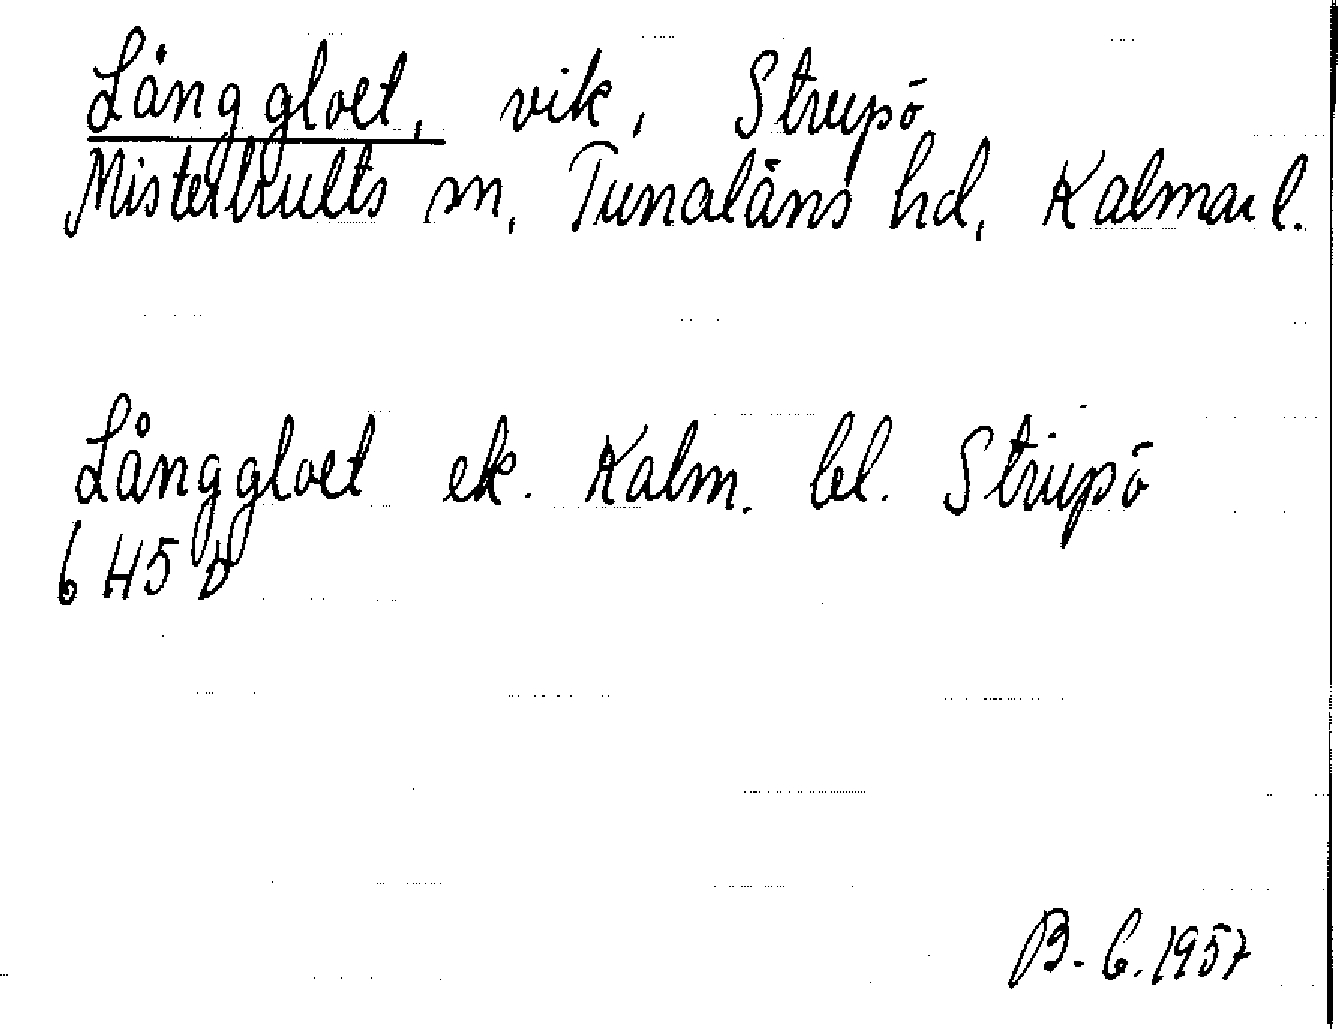 Långgloet, vik, Strupö
Misterhults sn, Tunaläns hd, Kalmar l.
Långgloet ek. Kalm. bl. Strupö
6 H5 b
B. G. 1957